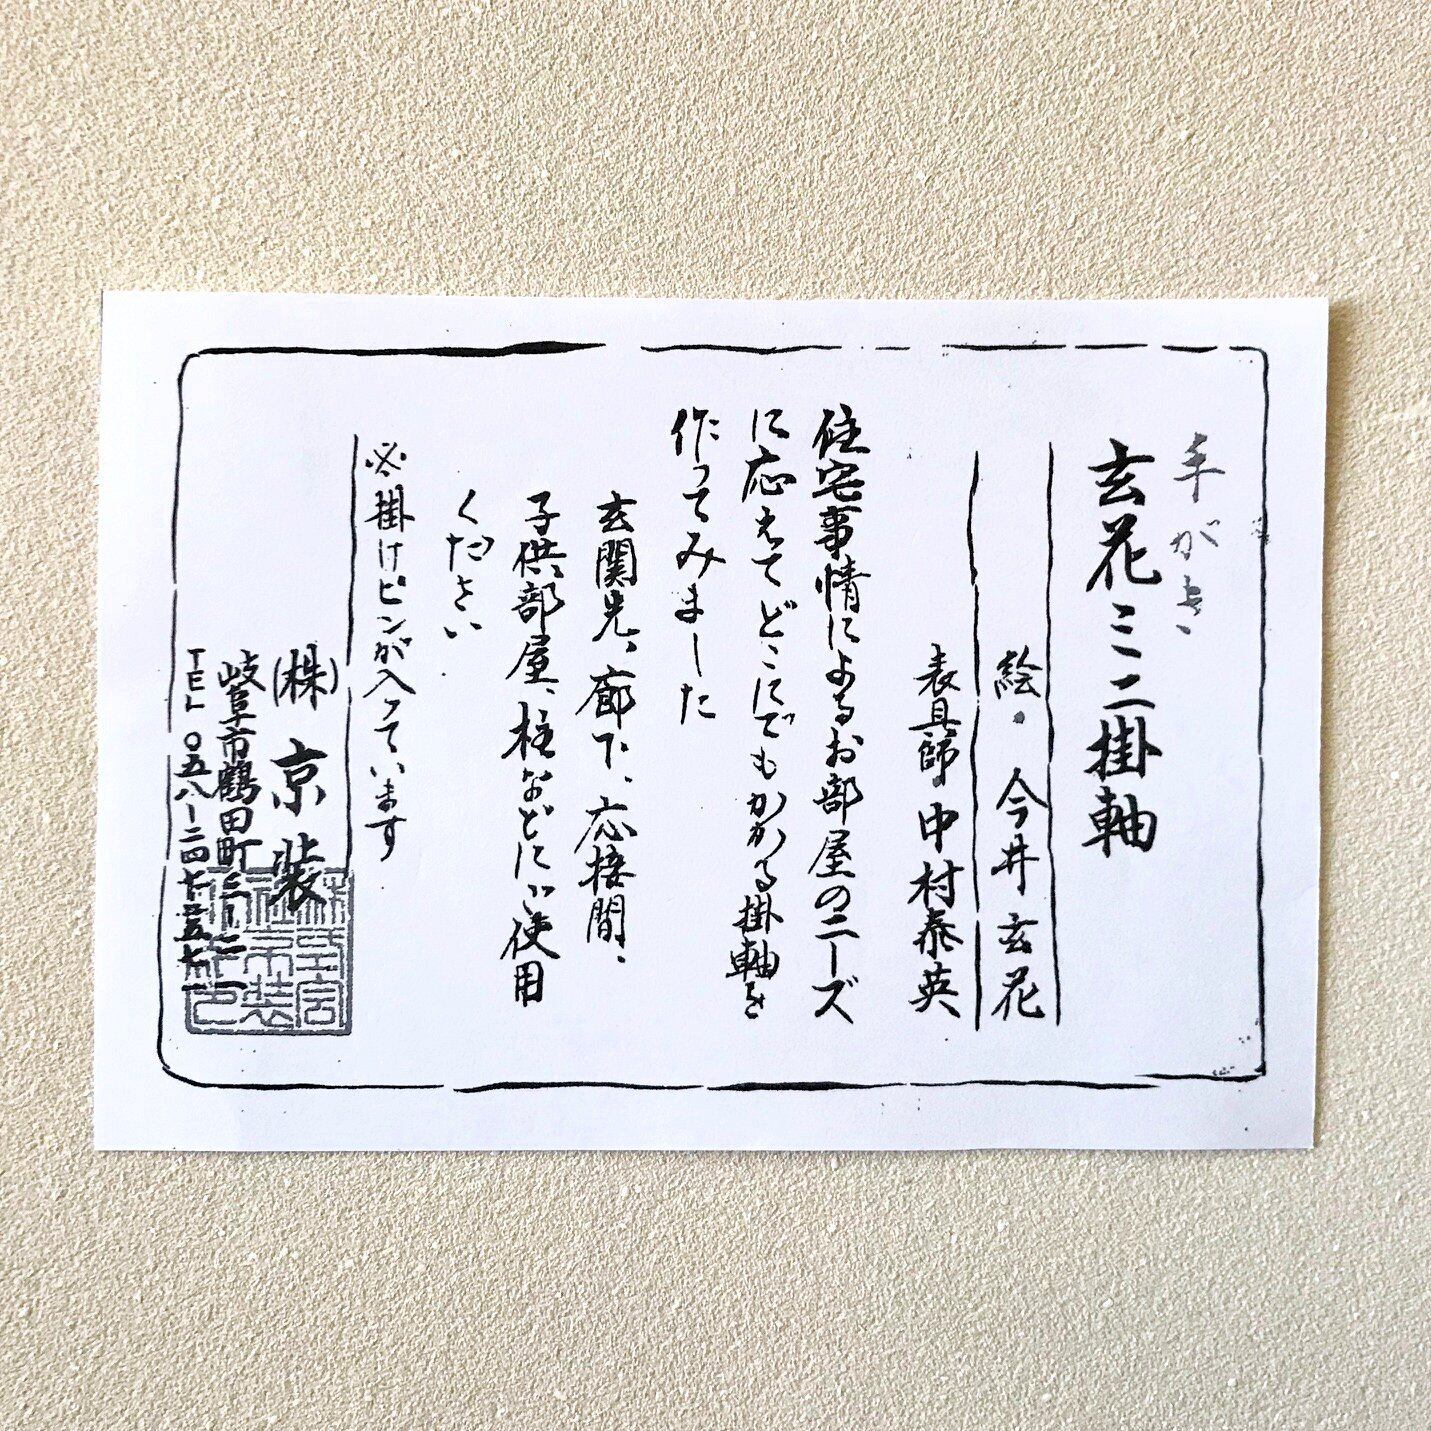 手がき
玄花ミニ掛軸
絵・今井玄花
表具師 中村泰英
住宅事情によるお部屋のニーズ
に応えてどこにでもかかる掛軸を
作ってみました
玄関先、廊下、応接間、
子供部屋、柱などにご使用
ください
※掛けピンが入っています
(株)京装
岐阜市鶴田町三ー二一
TEL 〇五八ー二四